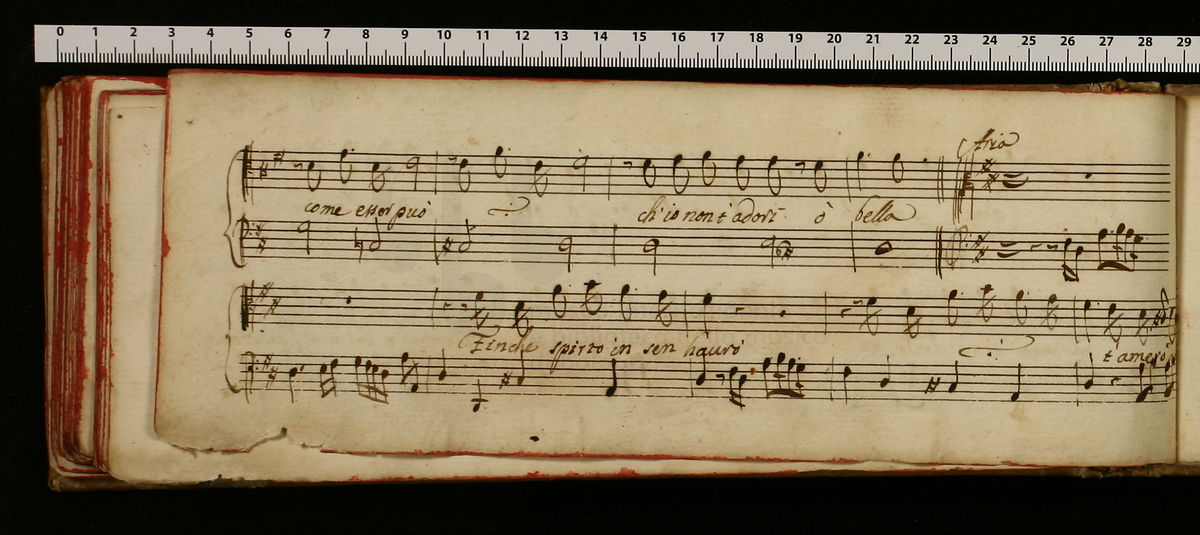 0 1 2 3 4 5 6 7 8 9 10 11 12 13 14 15 16 17 18 19 20 21 22 23 24 25 26 27 28 29
Aria
come esser può ch'io non t'adori ò bella
Finche spirto in sen haurò t'amerò